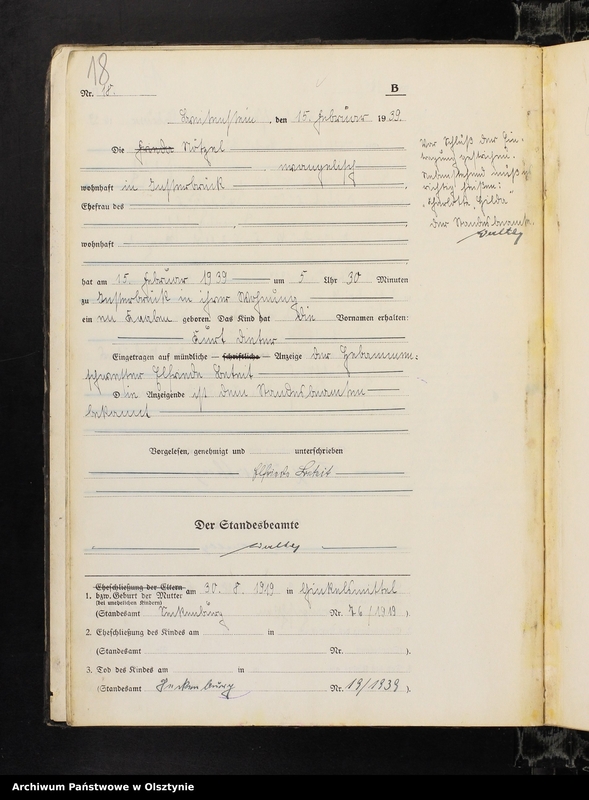 18
Nr. 18.
B
, den 15. Februar 1939.
Die Nötzel
evangelisch
wohnhaft in Insterbrück
Ehefrau des
wohnhaft
hat am 15. Februar 1939 um 5 Uhr 30 Minuten
zu Insterbrück in ihrer Wohnung
ein en Knaben geboren. Das Kind hat die Vornamen erhalten:
Kurt Dieter
Eingetragen auf mündliche — schriftliche — Anzeige der Hebammen-
schwester Elfriede
D ie Anzeigende ist dem Standesbeamten
bekannt
Vorgelesen, genehmigt und unterschrieben
Elfriede
Der Standesbeamte
Vor Schluß der Ein-
tragung gestrichen.
Nebenstehend muß es
richtig heißen:
"Charlotte, Hilda"
Der Standesbeamte
1. Eheschließung der Eltern
bzw. Geburt der Mutter am 30. 8. 1919 in
(bei unehelichen Kindern)
(Standesamt Nr. 76/1919 ).
2. Eheschließung des Kindes am in
(Standesamt Nr. ).
3. Tod des Kindes am in
(Standesamt Nr. 19/1939 ).
Archiwum Państwowe w Olsztynie